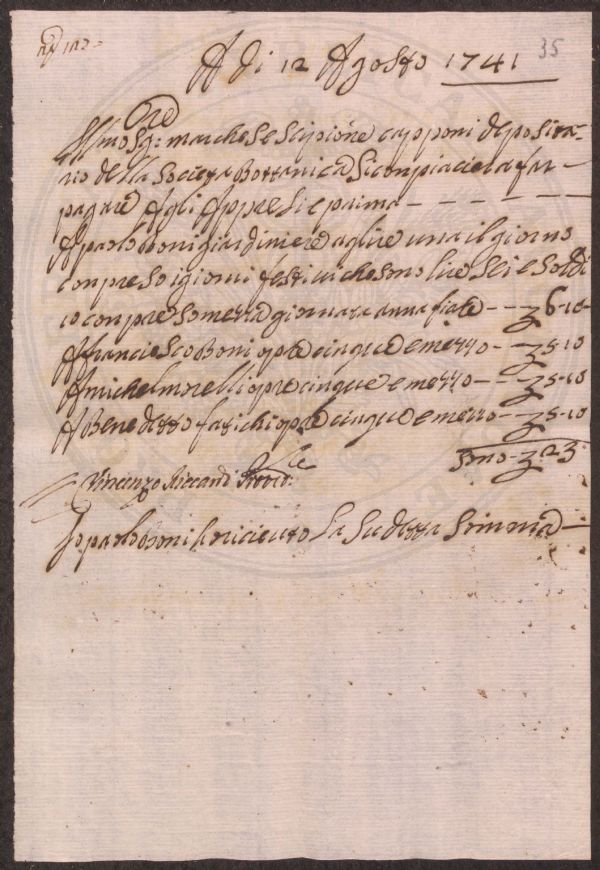 35
A di 12 Agosto 1741
Illmo Sg: marchese Scipione capponi deposita=
rio della Societa Bottanica Si conpiacera far
pagare Agli Appre Si e prima
A paolo boni giardiniere a lire una il giorno
conpreso i giorni festivi che sono lire sei e soldi
10 conpreso mezza giornata annafiate - - ʒ 6-10
A francesco Boni opre cinque e mezzo - ʒ 5-10
A michel morelli opre cinque e mezzo - - ʒ 5-10
A Benedetto fatichi opre cinque e mezzo - - ʒ 5-10
sono - ʒ 23
Vincenzo Riccardi
Io paolo boni ho riceuto La Sudetta Somma